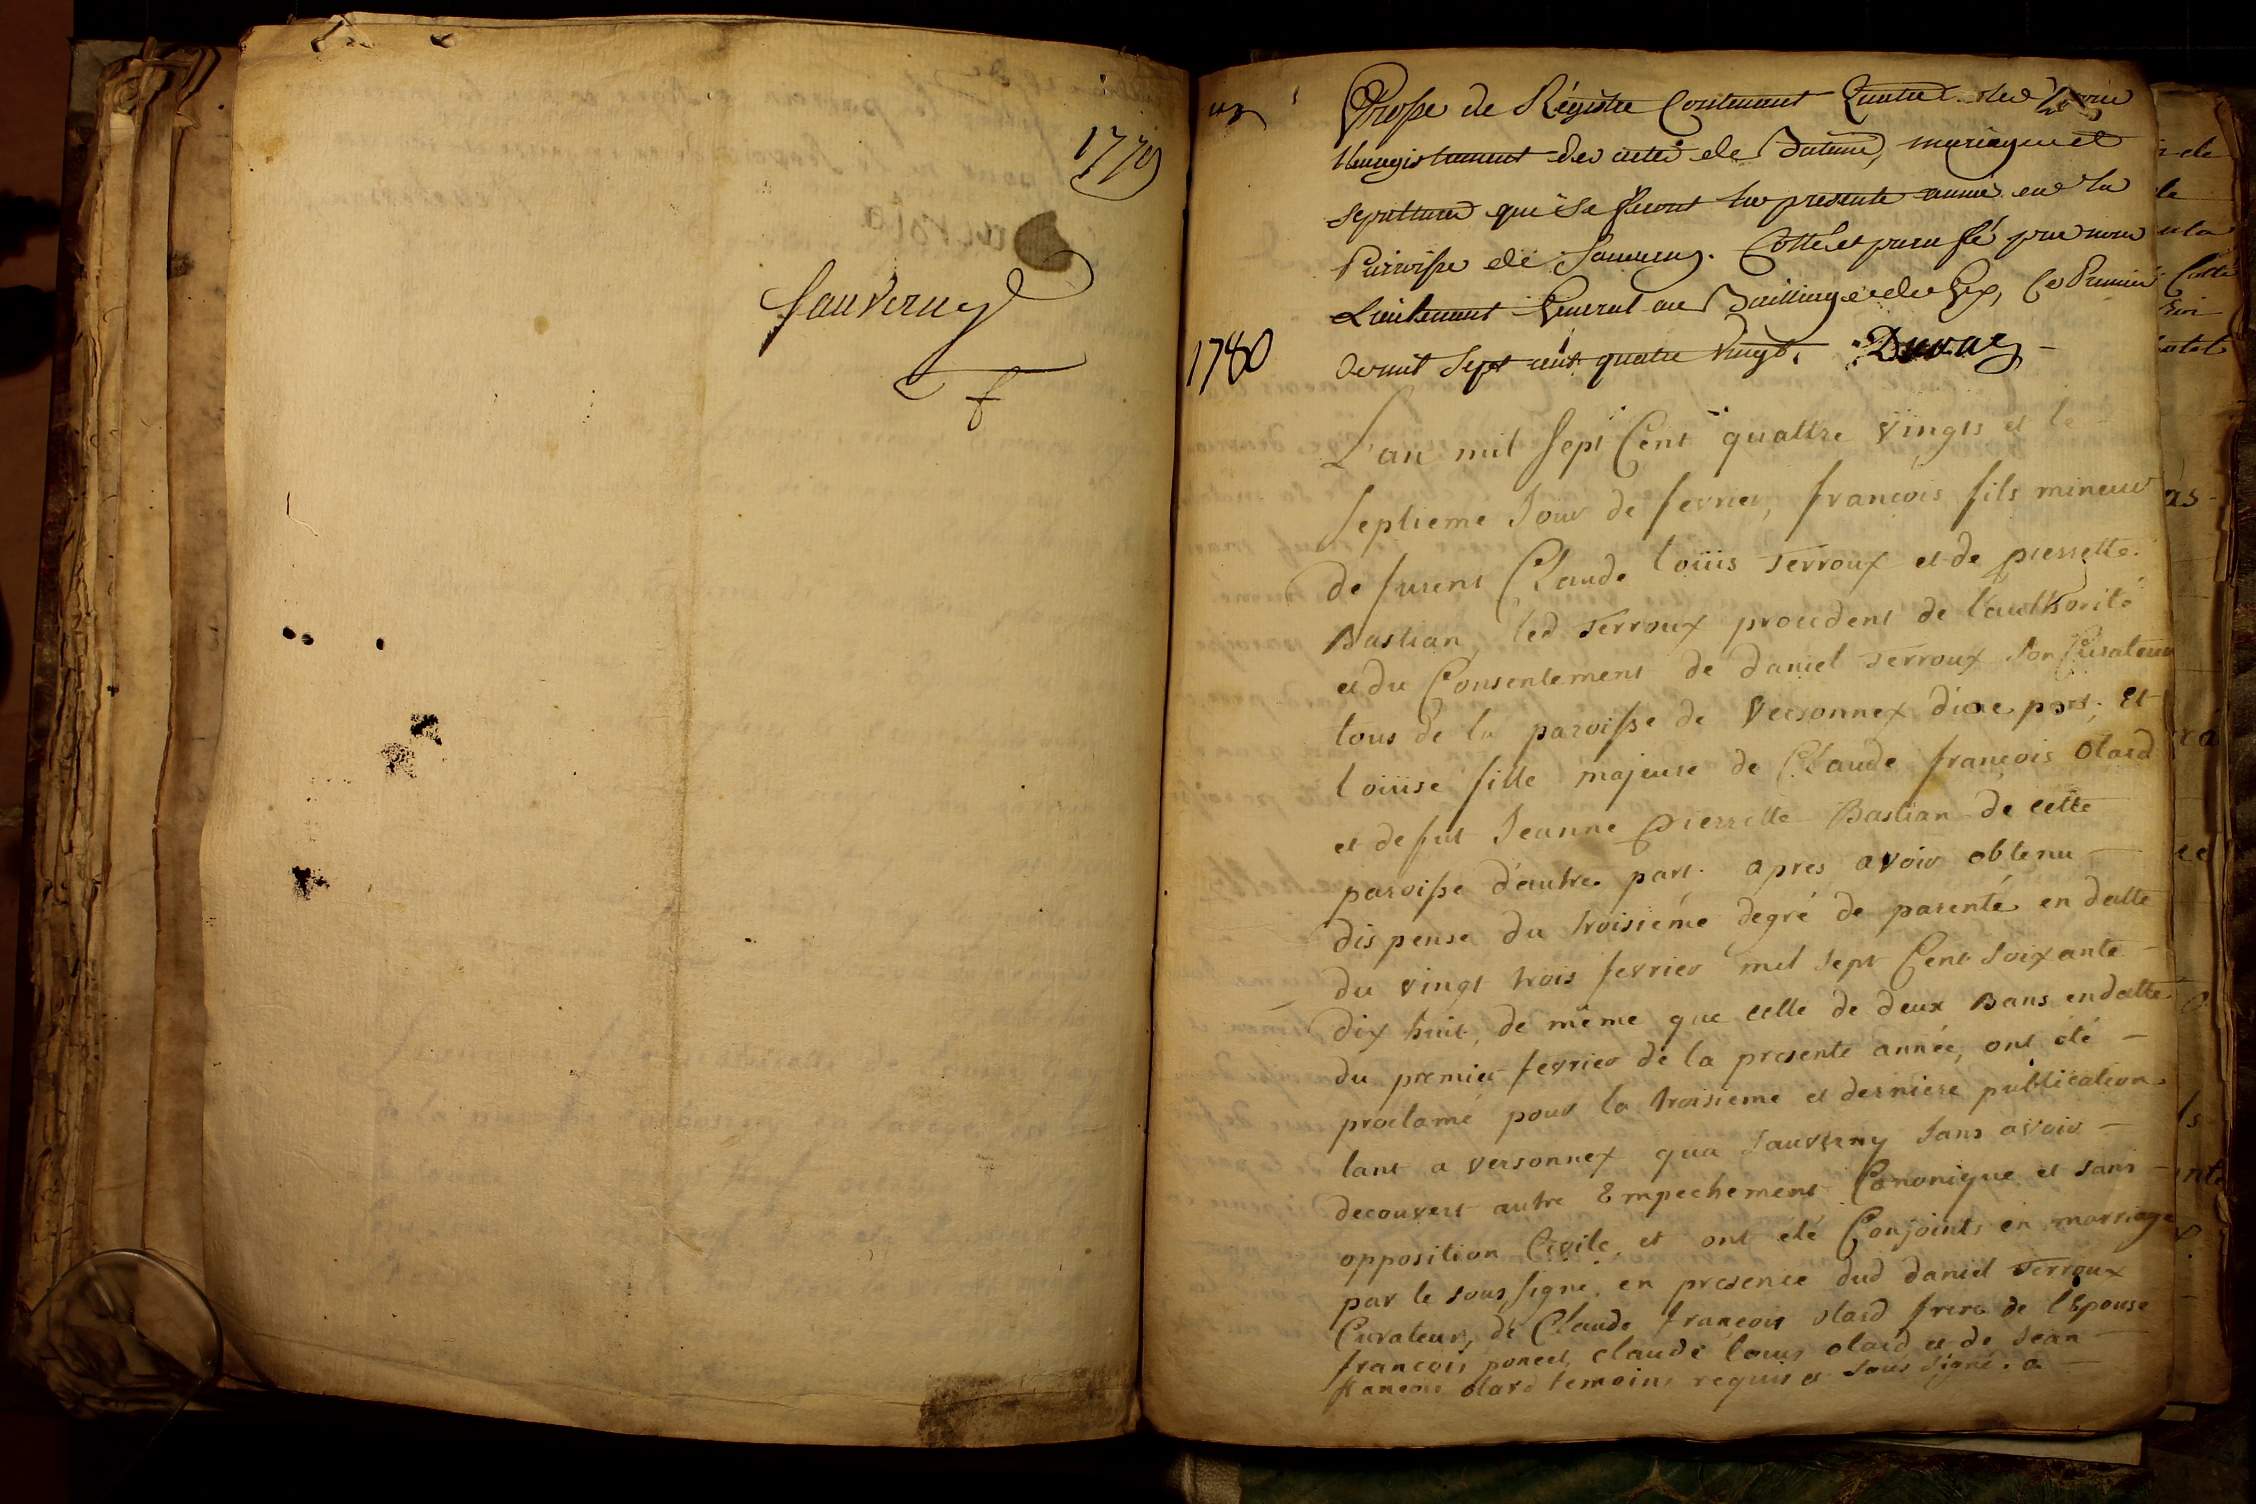 1779
Sauverny
Grosse de Régistre Contenant quatre
Enregistrement des actes de Batême, mariages et
sepultures qui se feront la presente année en la
Paroisse de Sauverny. Cotté et paraffé par nous
Lieutenant General au Bailliage de Gex, Ce Premier
1780
mil sept cent quatre vingt. Duval
L'an mil sept Cent quattre vingts et le
septieme Jour de fevrier, francois fils mineur
de furent Claude loüis Terroux et de pierrette
Bastian, led Terroux procedent de l'authorité
et du Consentement de daniel Terroux son Curateur
tous de la paroisse de Versonnex d'une part; et
loüise fille majeure de Claude françois olard
et de fut Jeanne pierrette Bastian de cette
paroisse d'autre part. apres avoir obtenu
dispense du troisiéme degré de parenté en datte
du vingt trois fevrier mil sept Cent soixante
dix huit, de même que celle de deux Bans en datte
du premier fevrier de la presente année, ont été
proclamé pour la troisieme et derniere publication
tant a versonnex qua sauverny sans avoir
decouvert autre Empechement Canonique et sans
opposition Civile, et ont été Conjoints en marriage
par le sous signé, en presence dud daniel Terroux
Curateur, de Claude françois olard frere de l'Epouse
francois poncet, claude louis olard et de Jean
francois olard temoins requis et sous signé. a